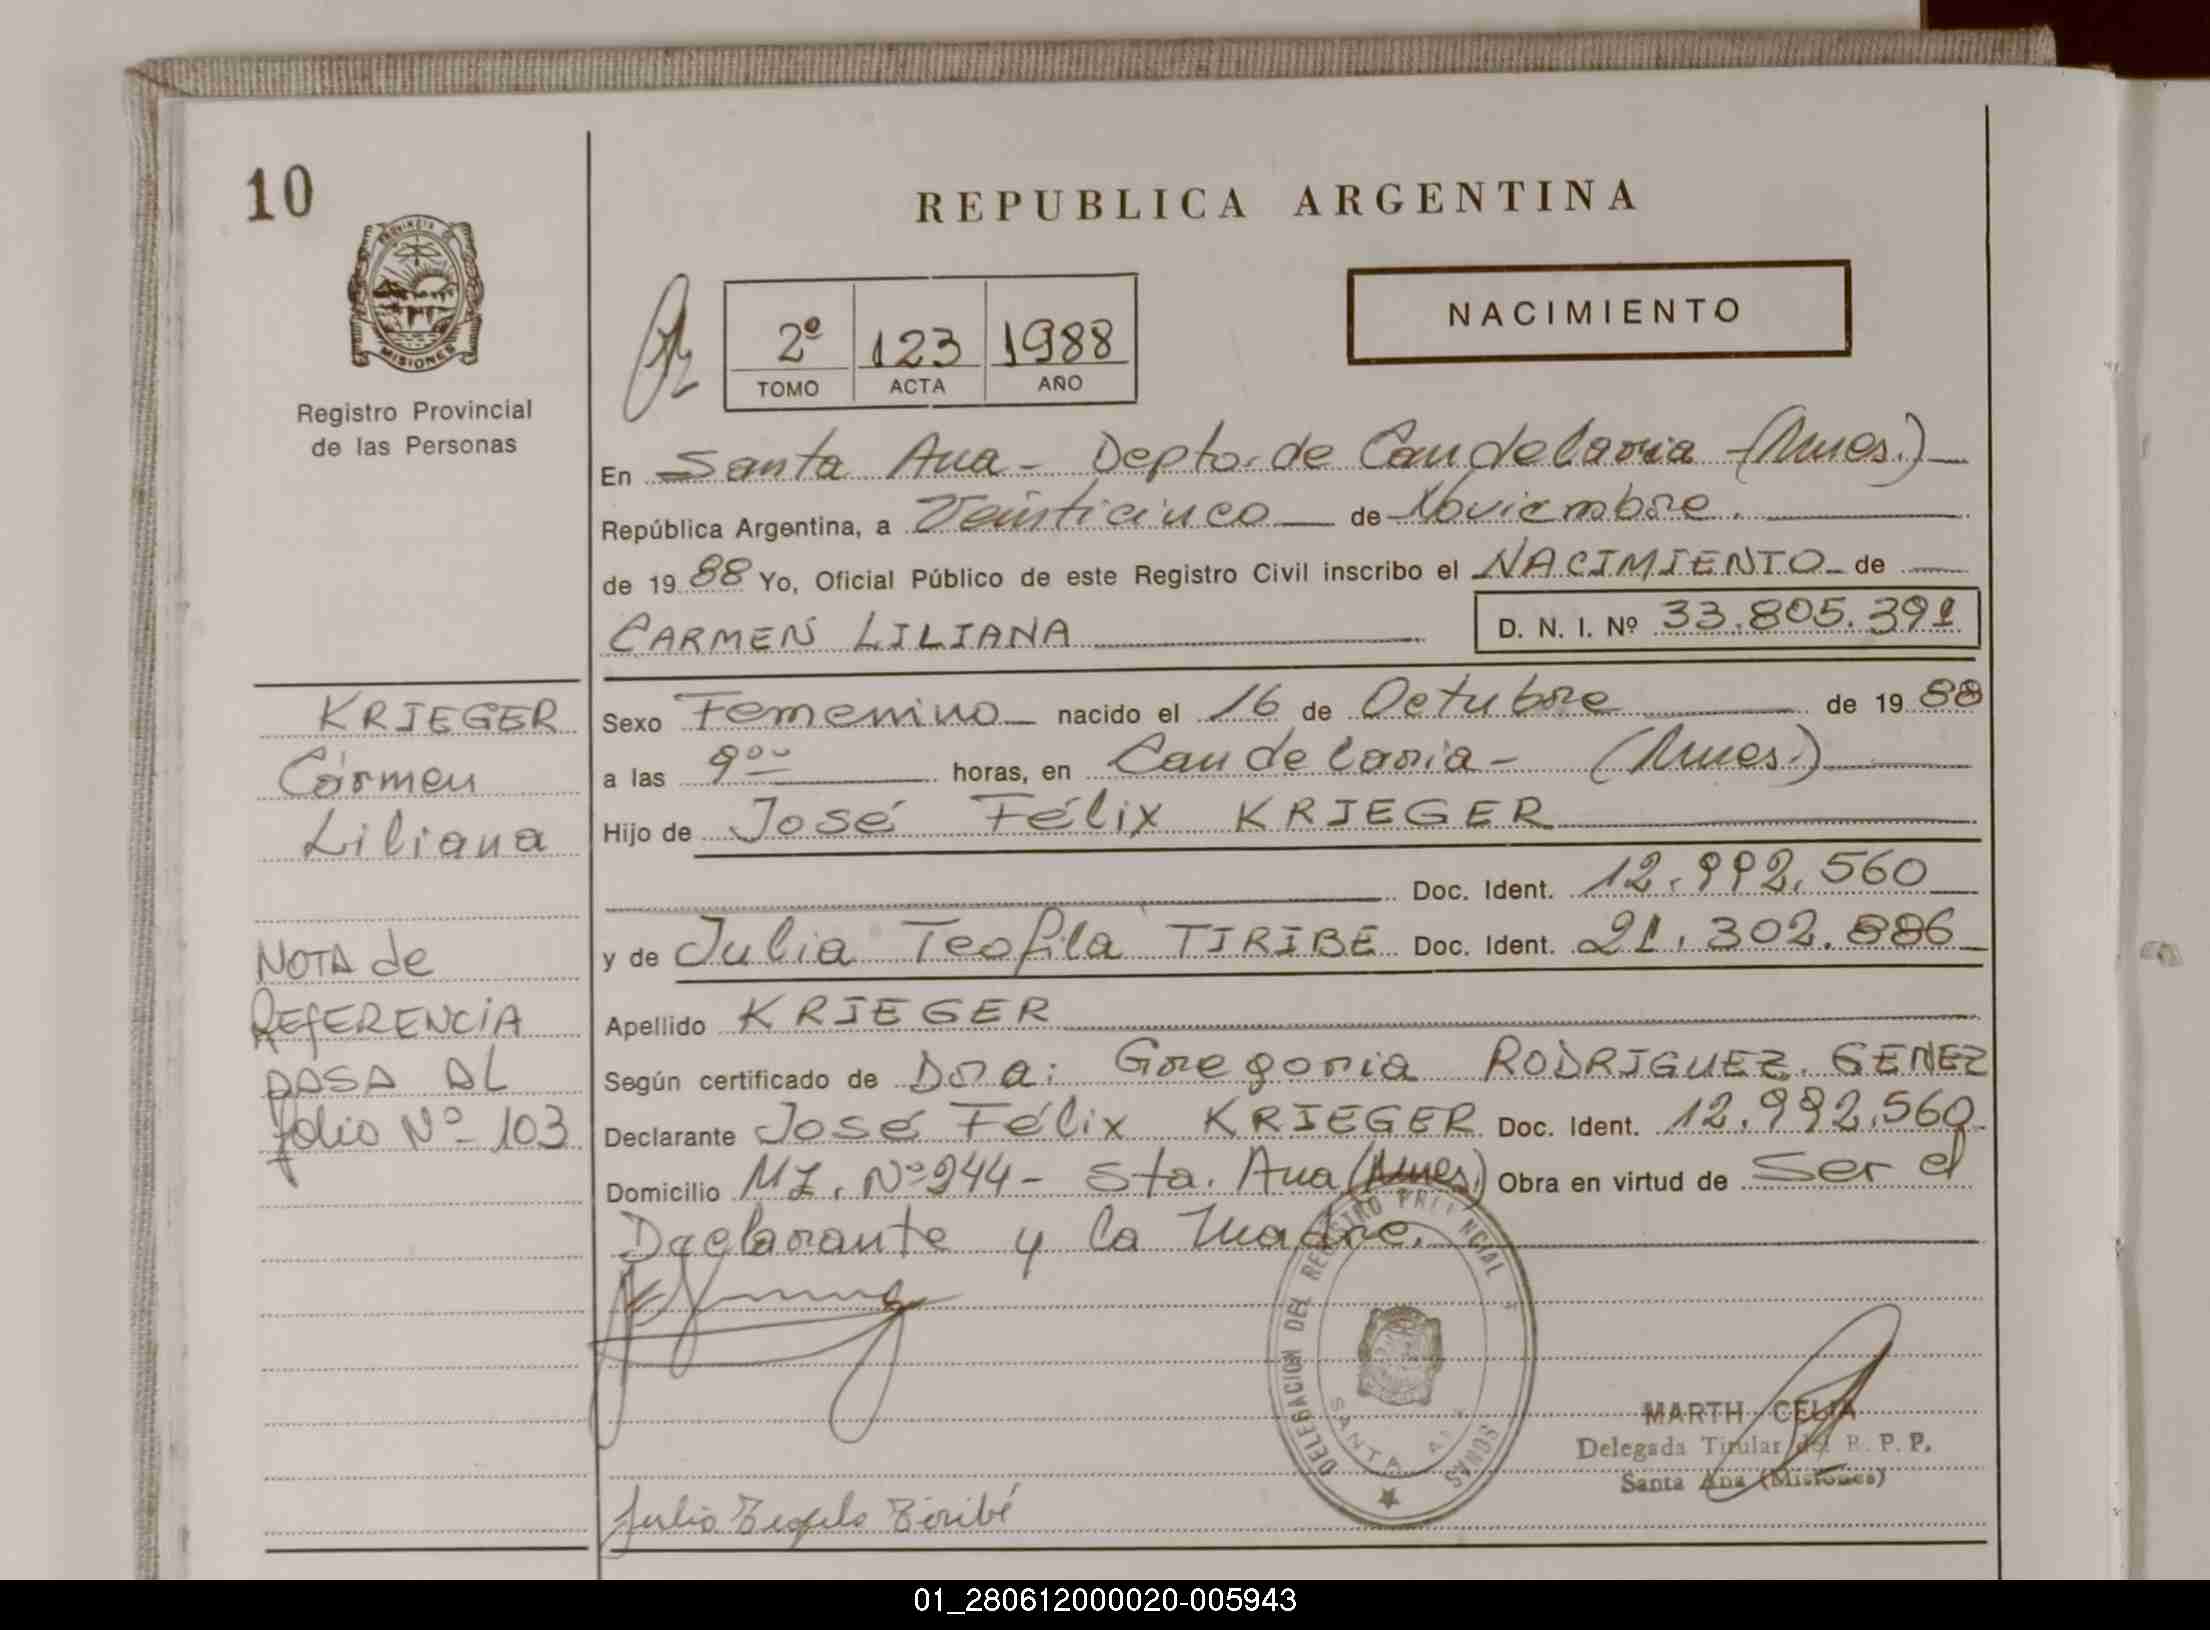 10
PROVINCIA DE
MISIONES
Registro Provincial
de las Personas
REPUBLICA ARGENTINA
NACIMIENTO
2º 123 1988
TOMO ACTA AÑO
En Santa Ana - Depto. de Candelaria - (Mnes.)
República Argentina, a Veinticinco de Noviembre.
de 1988 Yo, Oficial Público de este Registro Civil inscribo el NACIMIENTO de
CARMEN LILIANA D. N. I. Nº 33.805.391
KRIEGER
Cármen
Liliana
NOTA de
REFERENCIA
PASA AL
folio Nº- 103
Sexo Femenino nacido el 16 de Octubre de 1988
a las 9°° horas, en Candelaria - (Mnes.)
Hijo de José Félix KRIEGER
Doc. Ident. 12.992.560
y de Julia Teofila TIRIBE Doc. Ident. 21.302.886
Apellido KRIEGER
Según certificado de Dra: Gregoria RODRIGUEZ GENEZ
Declarante José Félix KRIEGER Doc. Ident. 12.992.560
Domicilio MZ. Nº 244 - Sta. Ana (Mnes.) Obra en virtud de ser el
Declarante y la madre.
DELEGACION DEL REGISTRO PROVINCIAL
SANTA ANA
MARTH CELIA
Delegada Titular del R. P. P.
Santa Ana (Misiones)
Julia Teofila Tiribé
01_280612000020-005943